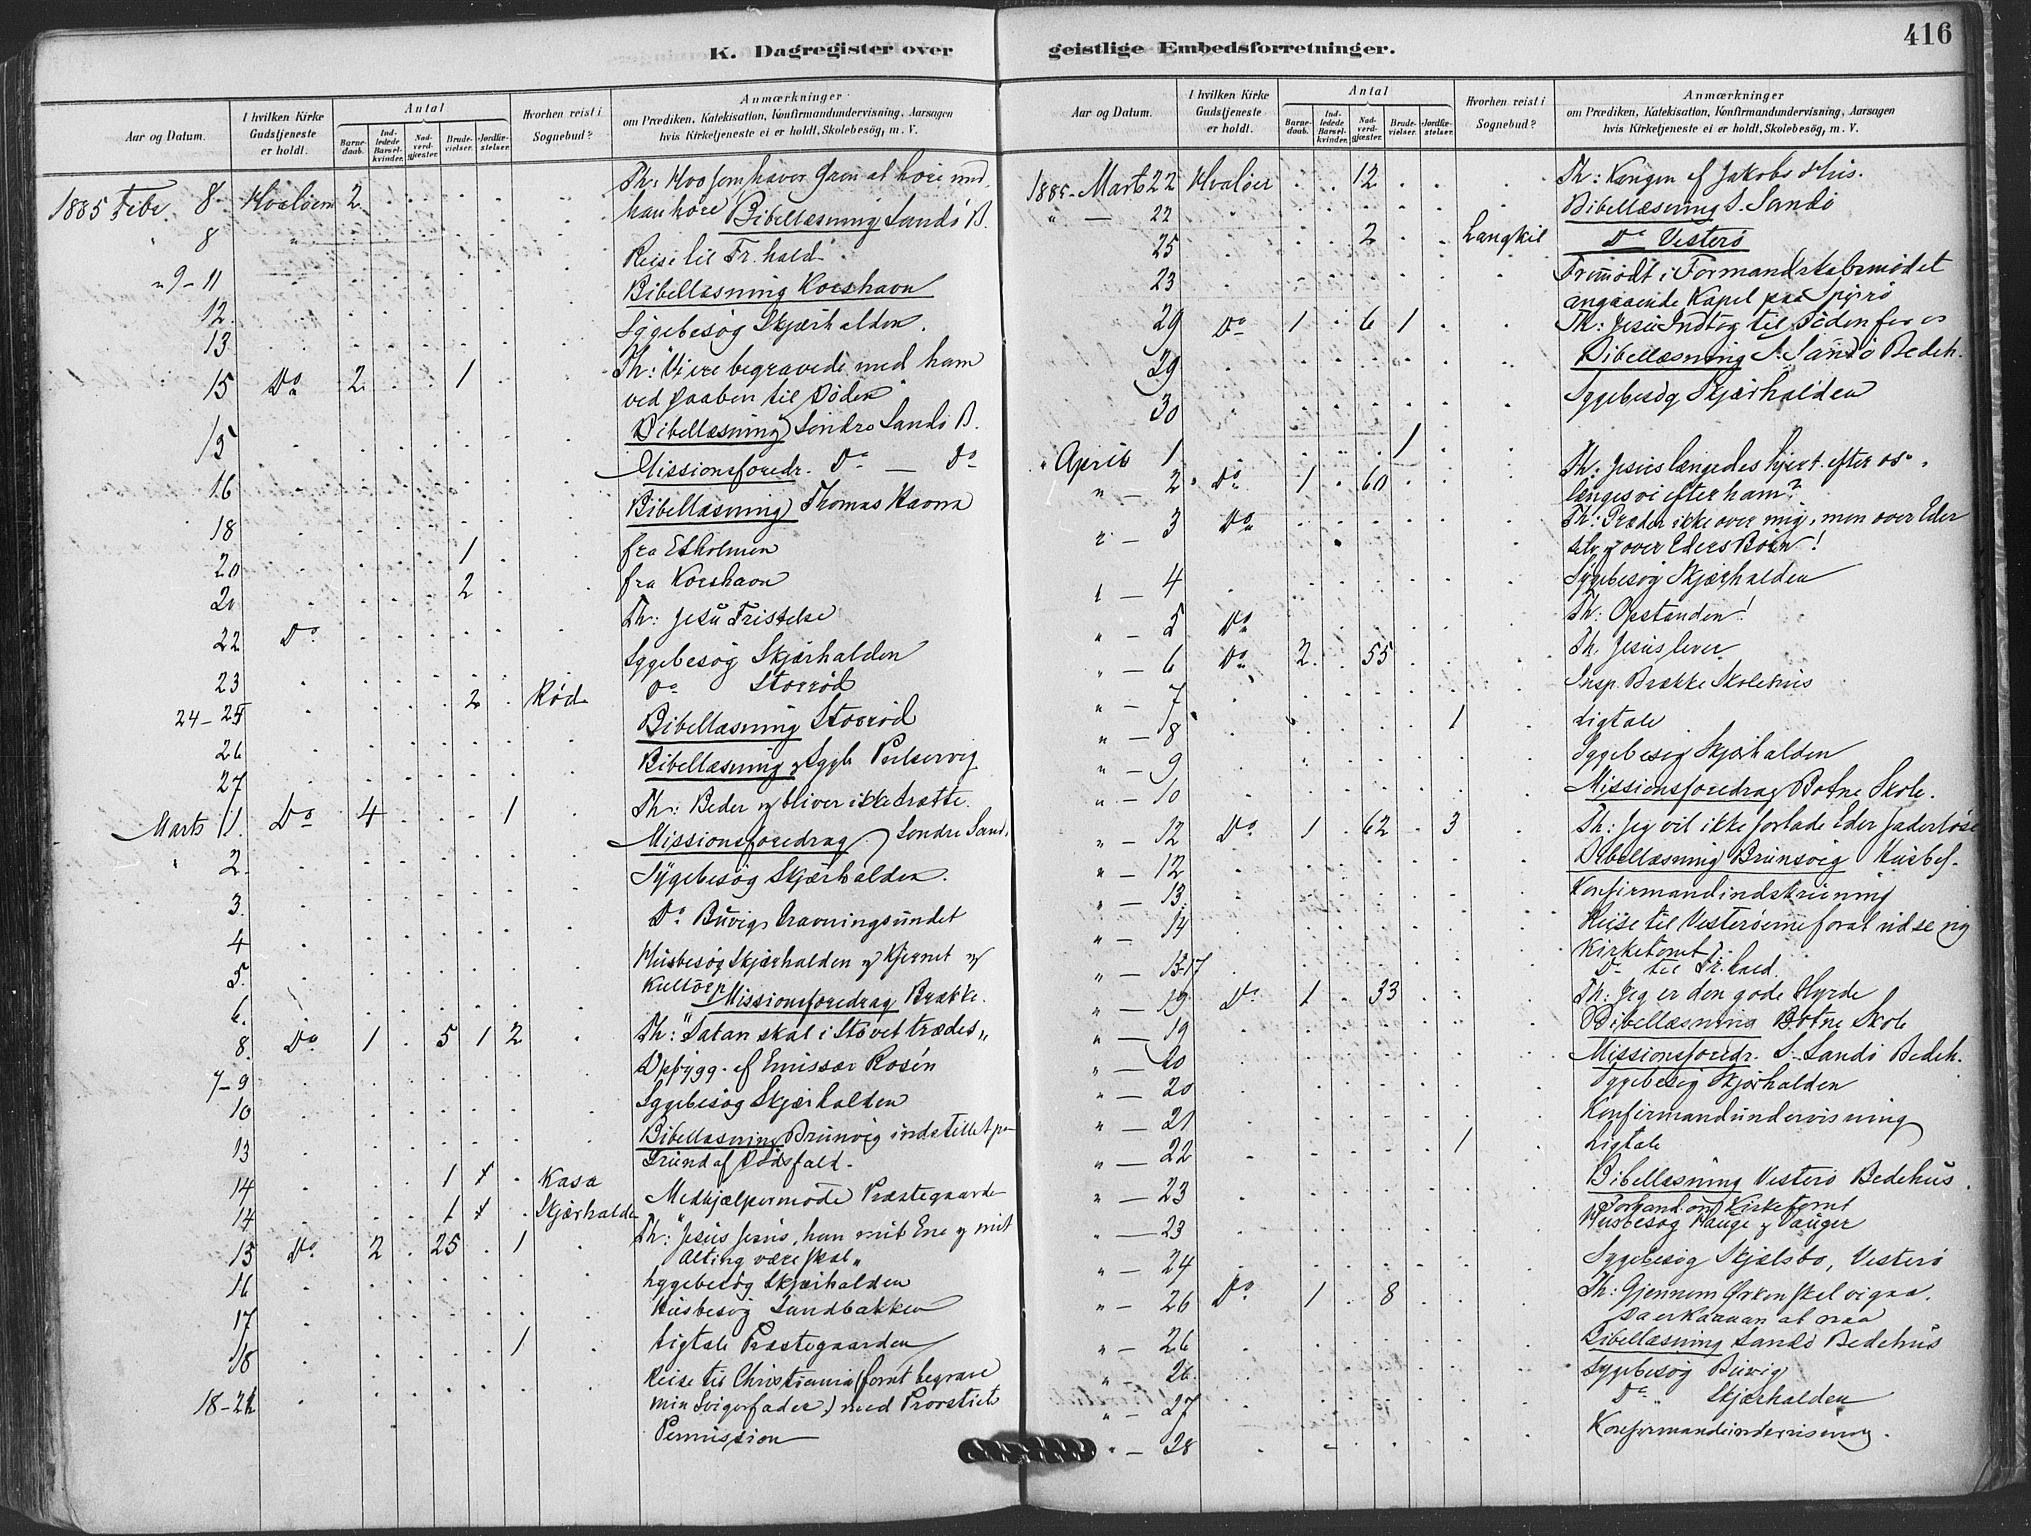 416
K. Dagregister over geistlige Embedsforretninger.
Aar og Datum.
I hvilken Kirke Gudstjeneste er holdt.
Antal
Barnedaab.
Indledede Barselkvinder.
Nadverdgjester.
Brudevielser.
Jordfæstelser.
Hvorhen reist i Sognebud?
Anmærkninger
om Prædiken, Katekisation, Konfirmandundervisning, Aarsagen
hvis Kirketjeneste ei er holdt, Skolebesøg, m. V.
1885 Febr 8 Hvaløerne 2 Th: Hvo som haver Øren at høre med,
han høre
8 Bibellæsning Sandø B.
9-11 Reise til Fr.hald
12. Bibellæsning Korshavn
13 Sygebesøg Skjærhalden.
15 Do 2 1 Th: Vi ere begravede med ham
ved Daaben til Døden
15 Bibellæsning Søndre Sandø B.
16 Missionsforedr. Do — Do
18 Bibellæsning Thomas Havna
20 1 fra Esholmen
20 2 fra Korshavn
22 Do Th: Jesu Fristelse
23 Sygebesøg Skjærhalden
24-25 2 Rød Do Storrød
26 Bibellæsning Storrød
27 Bibellæsning og Sygb
Marts 1. Do 4 1 Th: Beder og bliver ikke trætte.
2. Missionsforedrag Søndre Sand.
3. Sygebesøg Skjærhalden.
4 Do Buvig Gravningsundet
5. Husbesøg Skjærhalden og Kjernet og
6. Missionsforedrag Brække.
8. Do 1 5 1 2 Th: "Satan skal i Støvet trædes"
7-9 af Emissær Rosén
10 Sygebesøg Skjærhalden
13 Bibellæsning Brunvig indstillet pa
Grund af Dødsfald.
14 1 Kasa
14 1 Skjærhalde Medhjælpermøde Præstegaarde
15 Do 2 25 1 Th: "Jesus Jesus, han mit Ene og mit
Alting være skal"
16 Sygebesøg Skjærhalden
17 Husbesøg Sandbakken
18 1 Ligtale Præstegaarden
18-21 Reise til Christiania (for at begrave
min Svigerfader) med Provstiets
Permission
Aar og Datum.
I hvilken Kirke Gudstjeneste er holdt.
Antal
Barnedaab.
Indledede Barselkvinder.
Nadverdgjester.
Brudevielser.
Jordfæstelser.
Hvorhen reist i Sognebud?
Anmærkninger
om Prædiken, Katekisation, Konfirmandundervisning, Aarsagen
hvis Kirketjeneste ei er holdt, Skolebesøg, m. V.
1885 Marts 22 Hvaløer 12 Th: Kongen af Jakobs Hus.
" — 22 Bibellæsning S. Sandø
25 2 Langkil Do Vesterø
23 Fremmødt i Formandskabsmødet
angaaende Kapel paa Spjærø
29 Do 1 6 1 Th: Jesu Indtog til Døden for os
29 Bibellæsning S. Sandø Bedeh.
30 Sygebesøg Skjærhalden
" April 1 1
" — 2 Do 1 60 Th: Jesus længedes hjert. efter os,
længes vi efter ham?
" — 3 Do Th: Græder ikke over mig, men over Eder
selv og over Eders Børn!
" — 4 Sygebesøg Skjærhalden
" — 5 Do Th: Opstanden!
" — 6 Do 2 55 Th. Jesus lever
" — 7 Insp. Brække Skolehus
" — 8 1 Ligtale
" — 9 Sygebesøg Skjærhalden
" — 10 Missionsforedrag Botne Skole.
" — 12 Do 1 62 3 Th: Jeg vil ikke forlade Eder faderløse
" — 12 Bibellæsning Brunsvig Husbes.
" — 13. Konfirmandindskrivning
" — 14 Reise til Vesterøerne for at udse ny
Kirketomt
" — 15-17 Do til Fr.hald.
" — 19 Do 1 33 Th: Jeg er den gode Hyrde
" — 19 Bibellæsning Botne Skole
" — 20 Missionsforedr. S. Sandø Bedeh.
" — 20 Sygebesøg Skjærhalden
" — 21 Konfirmandundervisning
" — 22 1 Ligtale
" — 23 Bibellæsning Vesterø Bedehus.
Forhand om Kirketomt
" — 23 Husbesøg Hauge og Vauger
" — 24 Sygebesøg Skjælsbo, Vesterø
" — 26 Do 1 8 Th: Gjennem Ørken skal vi gaa.
Da er Kanaan at naa
" — 26 Bibellæsning Sandø Bedehus
" 26 Sygebesøg Buvig
" — 27 Do " Skjærhalden
" — 28 Konfirmandundervisning.